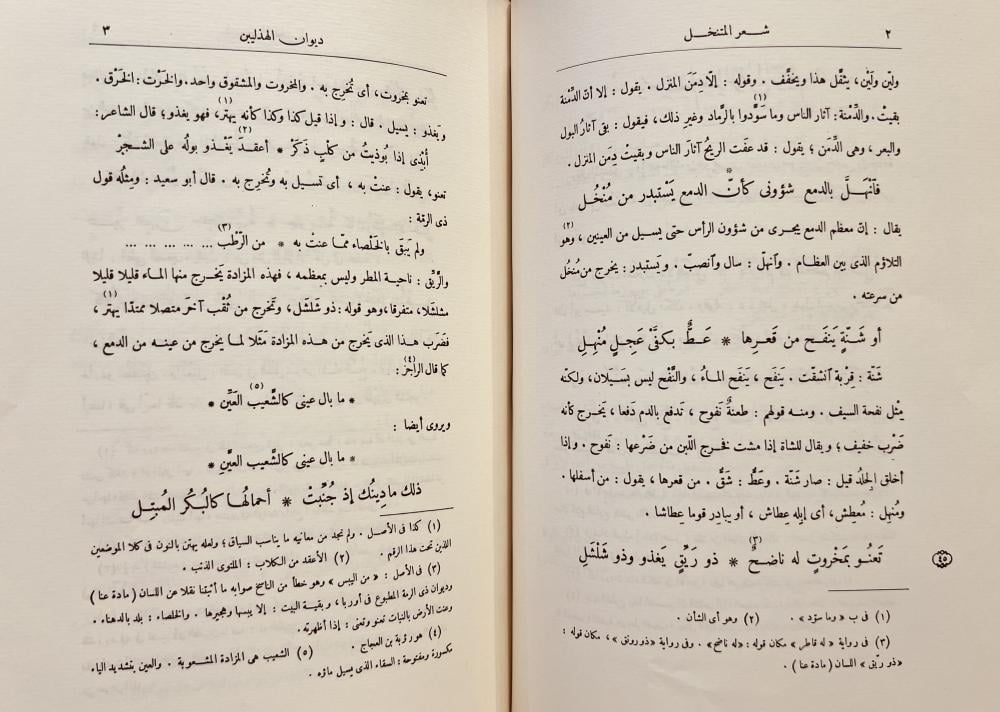 ٢ شعر المتنخل
ولين ولَيِّن، يثقَّل هذا ويخفَّف . وقوله : إلّا دِمَنَ المنزل . يقول : إلا أنّ الدِّمنة
بقيتْ. والدِّمْنة: آثار الناس وما سوَّدوا (١) بالرَّماد وغيرِ ذلك، فيقول : بقى آثارُ البول
والبعر، وهى الدِّمَن ؛ يقول : قد عفَت الريحُ آثارَ الناس وبقيتْ دِمَن المنزل .
فآنْهَلَّ بالدمع شؤونى كأنّ * الدمع يَسْتبدر من مُنْخُل
يقال : إنّ معظم الدمع يجرى من شؤون الرأس حتّى يسيل من العينين ، وهو (٢)
التلاؤم الذى بين العظام . وآنهلّ : سال وآنصبّ . ويَستبدر : يخرج من مُنْخُل
من سرعته .
أو شَنّةٍ يَنفَح من قَعرِها * عَطٌّ بكفَّىْ عَجِلٍ مُنْهِلِ
شَنّة : قربة آنشقّت . يَنفَح ، يَنفَح الماءُ، والنَّفْح ليس بسَيَلان، ولكنّه
مِثْل نفحة السيف . ومنه قولهم : طعنةٌ نَفوح ، تَدفع بالدم دَفعا، يَخرج كأنه
ضَرْب خفيف ؛ ويقال للشاة إذا مشت فخرج اللبن من ضَرْعها : نَفوح . وإذا
أخلق الجِلْد قيل : صار شَنّة . وعطٌّ : شَقٌّ . من قعرها ، يقول : من أسفلها .
ومُنهِل : مُعطِش، أى إبله عِطاش ، أو يبادر قوما عِطاشا .
تَعنُو بمَخْروتٍ له ناضحٌ (٣) * ذو رَيِّقٍ يَغذو وذو شَلْشَلِ
٤٥
(١) فى ب « وما سوّد » . (٢) وهو أى الشأن .
(٣) فى رواية « له قاطر » مكان قوله : « له ناضح » . وفى رواية « ذو رونق » ، مكان قوله :
« ذو ريّق » اللسان ( مادة عنا ) .
ديوان الهذليين ٣
تعنو بمخروت، أى تُخرِج به . والمخروت والمشقوق واحد . والخَرْت : الخَرْق .
ويَغذو : يسيل . قال : وإذا قيل كذا وكذا كأنه يهتر (١)، فهو يغذو؛ قال الشاعر :
أُبْدِى إذا بُوذِيتُ من كلْبٍ ذَكَرْ * أعقدَ (٢) يَغْذو بولُه على الشجرْ
تعنو، يقول : عنتْ به ، أى تسيل به وتُخرج به . قال أبو سعيد : ومِثلُه قول
ذى الرمّة :
ولم يَبَق بالخَلْصاء ممّا عنتْ به * من الرُّطْب (٣) ... ... ... ... ...
والرَّيِّق : ناحية المطر وليس بمعظمه ، فهذه المزادة يَخرج منها الماء قليلا قليلا
مشلشَلا، متفرقا، وهو قوله : ذو شَلشَل، وتَخرج من ثُقْب آخَر متصلا ممتدّا يهتر (١) ،
فضَرَب هذا الذى يَخرج من هذه المزادة مَثَلا لما يخرج من عينه من الدمع ،
كما قال الراجز (٤) :
* ما بال عينى كالشَّعيب (٥) العَيَّنِ *
ويروى أيضا :
* ما بال عينى كالشَّعيب العيِّنِ *
ذلك ما دِينُك إذ جُنِّبتْ * أحمالُها كالبُكُر المُبْتِلِ
(١) كذا فى الأصل . ولم نجد من معانيه ما يناسب السياق؛ ولعله يهتن بالنون فى كلا الموضعين
اللذين تحت هذا الرقم . (٢) الأعقد من الكلاب : الملتوى الذنب .
(٣) فى الأصل : « من اليبس » وهو خطأ من الناسخ صوابه ما أثبتنا نقلا عن اللسان ( مادة عنا )
وديوان ذى الرمة المطبوع فى أوربا ، وبقية البيت : إلا يبسها وهجيرها . والخلصاء : بلد بالدهناء .
وعنت الأرض بالنبات تعنو وتعنى : إذا أظهرته .
(٤) هو رؤبة بن العجاج . (٥) الشعيب هى المزادة المشعوبة . والعين بتشديد الياء
مكسورة ومفتوحة : السقاء الذى يسيل ماؤه .